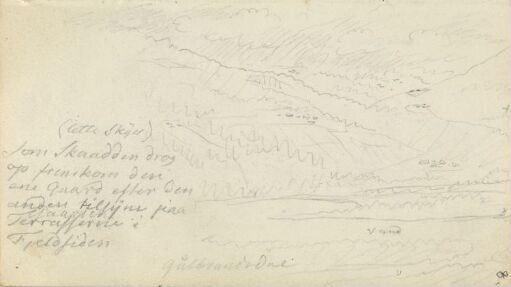 (lette Skyer)
Som Skaadden drog
op fremkom den
ene Gaard efter den
anden tilsyne paa
Terrasserne i
Fjeldsiden
Vand
Gulbrandsdal